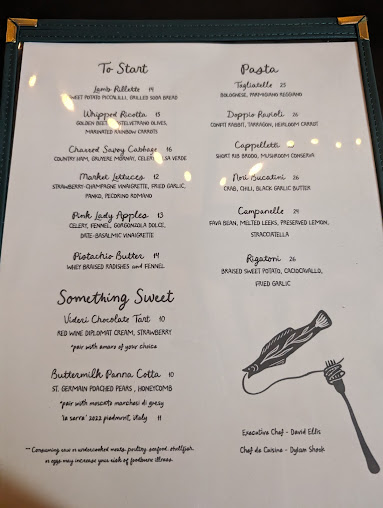 To Start
Lamb Rillette 14
SWEET POTATO PICCALILLI, GRILLED SODA BREAD
Whipped Ricotta 15
GOLDEN BEET, CASTELVETRANO OLIVES,
MARINATED RAINBOW CARROTS
Charred Savoy Cabbage 16
COUNTRY HAM, GRUYERE MORNAY, CELERY SALSA VERDE
Market Lettuces 12
STRAWBERRY-CHAMPAGNE VINAIGRETTE, FRIED GARLIC,
PANKO, PECORINO ROMANO
Pink Lady Apples 13
CELERY, FENNEL, GORGONZOLA DOLCE,
DATE-BASALMIC VINAIGRETTE
Pistachio Butter 14
WHEY BRAISED RADISHES and FENNEL
Something Sweet
Videri Chocolate Tart 10
RED WINE DIPLOMAT CREAM, STRAWBERRY
*pair with amaro of your choice
Buttermilk Panna Cotta 10
ST. GERMAIN POACHED PEARS, HONEYCOMB
*pair with moscato marchesi di gresy
'la serra' 2022 piedmont, italy 11
** Consuming raw or undercooked meats, poultry, seafood, shellfish,
or eggs may increase your risk of foodborne illness.
Pasta
Tagliatelle 23
BOLOGNESE, PARMIGIANO REGGIANO
Doppio Ravioli 26
CONFIT RABBIT, TARRAGON, HEIRLOOM CARROT
Cappelletti
SHORT RIB BRODO, MUSHROOM CONSERVA
Nori Bucatini 26
CRAB, CHILI, BLACK GARLIC BUTTER
Campanelle 24
FAVA BEAN, MELTED LEEKS, PRESERVED LEMON,
STRACCIATELLA
Rigatoni 26
BRAISED SWEET POTATO, CACIOCAVALLO,
FRIED GARLIC
Executive Chef - David Ellis
Chef de Cuisine - Dylan Shook